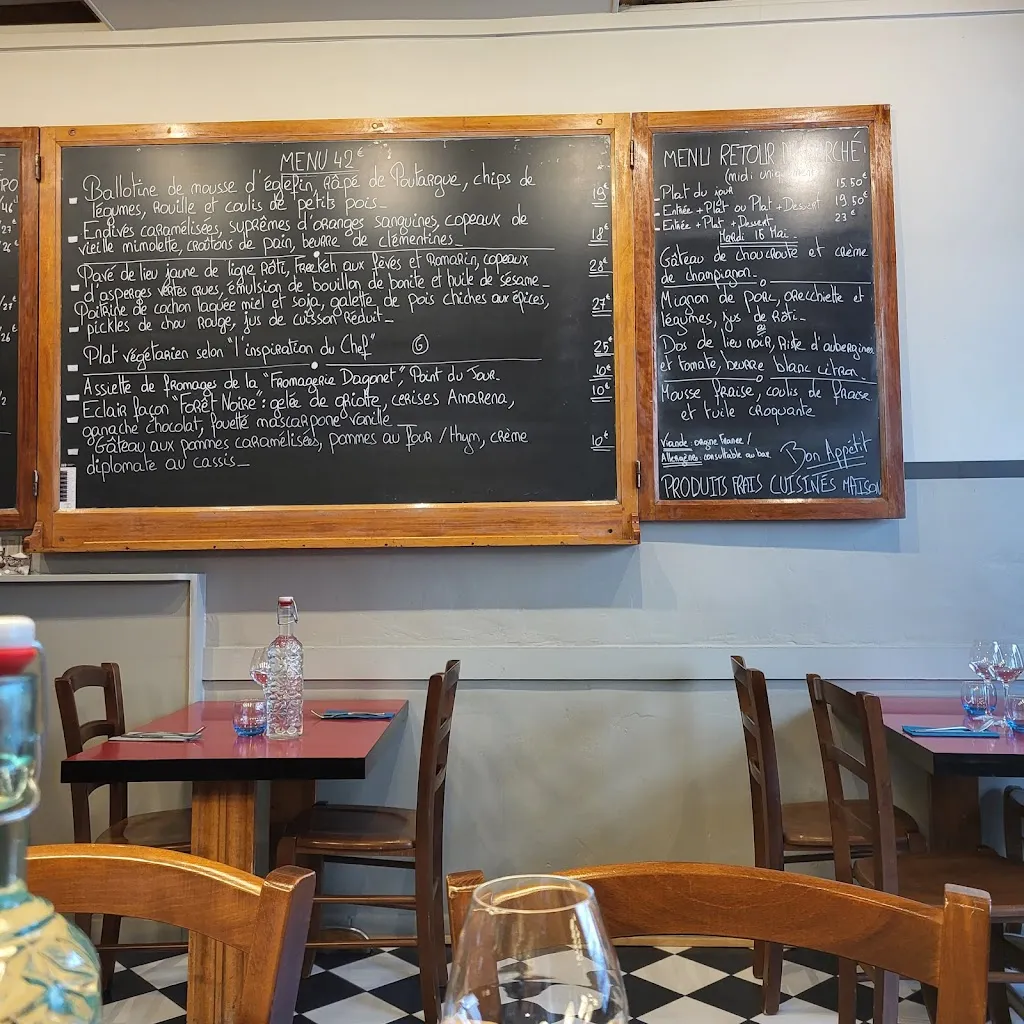 MENU 42€
- Ballotine de mousse d'églefin, Râpé de Poutargue, chips de
légumes, Rouille et coulis de petits pois_ 19€
- Endives caramélisées, suprêmes d'oranges sanguines, copeaux de
vieille mimolette, croûtons de pain, beurre de clémentines_ 18€
- Pavé de lieu jaune de ligne Rôti, Freekeh aux fèves et Romarin, copeaux
d'asperges vertes crues, émulsion de bouillon de bonite et huile de sésame_ 28€
- Poitrine de cochon laquée miel et soja, galette de pois chiches aux épices,
pickles de chou Rouge, jus de cuisson réduit_ 27€
- Plat végétarien selon "l'inspiration du Chef" 25€
- Assiette de fromages de la "Fromagerie Dagonet", Point du Jour_ 10€
- Eclair façon "Forêt Noire": gelée de griotte, cerises Amarena,
ganache chocolat, fouetté mascarpone vanille_ 10€
- Gâteau aux pommes caramélisées, pommes au Four / thym, crème
diplomate au cassis_ 10€
MENU RETOUR MARCHÉ
(midi
- Plat du jour 15.50€
- Entrée + Plat ou Plat + Dessert 19.50€
- Entrée + Plat + Dessert 23€
Mardi Mai_
Gâteau de choucroute et crème
de champignon_
Mignon de porc, orecchiette et
légumes, jus de Rôti_
ou
Dos de lieu noir, d'aubergine
et tomate, beurre blanc citron_
Mousse fraise, coulis de fraise
et tuile croquante
Viande: origine France /
Allergènes: consultable au bar
Bon Appétit
PRODUITS FRAIS CUISINÉS MAISON